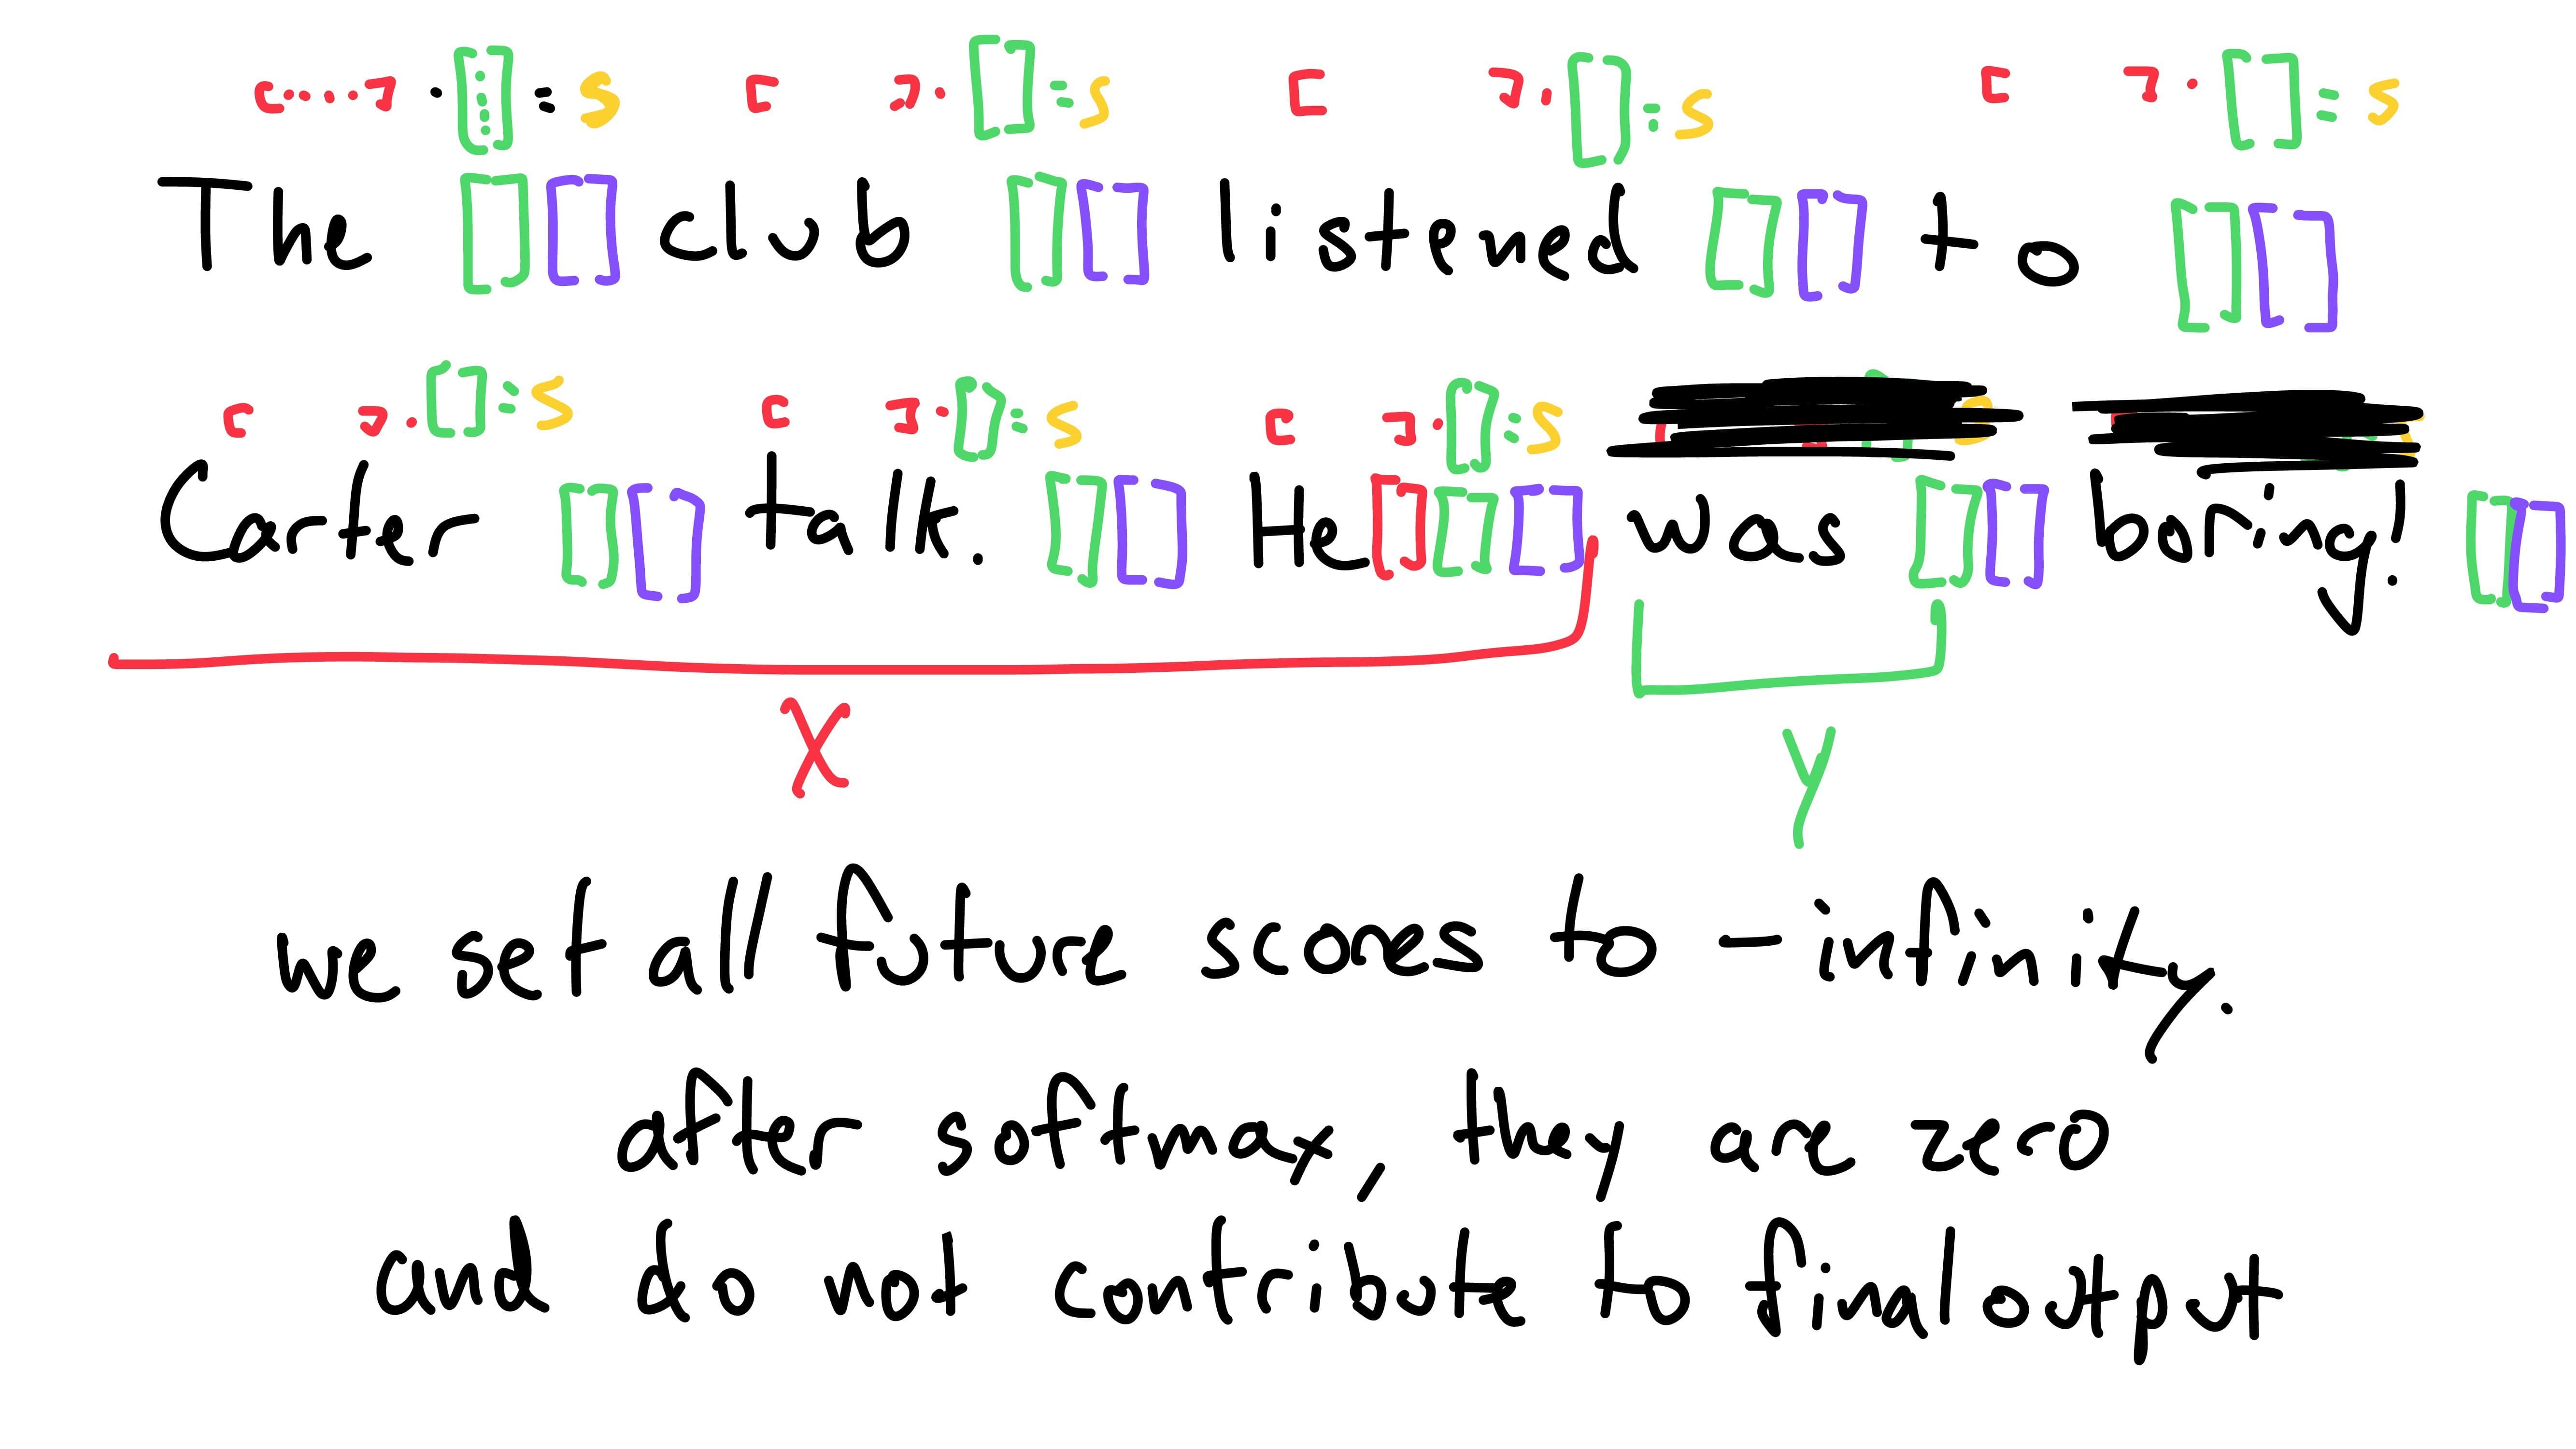 [.....] · [⋮] = S [ ] · [ ] = S [ ] · [ ] = S [ ] · [ ] = S
The [ ] [ ] club [ ] [ ] listened [ ] [ ] to [ ] [ ]
[ ] · [ ] = S [ ] · [ ] = S [ ] · [ ] = S
Carter [ ] [ ] talk. [ ] [ ] He [ ] [ ] [ ] was [ ] [ ] boring! [ ] [ ]
X
Y
we set all future scores to - infinity.
after softmax, they are zero
and do not contribute to final output